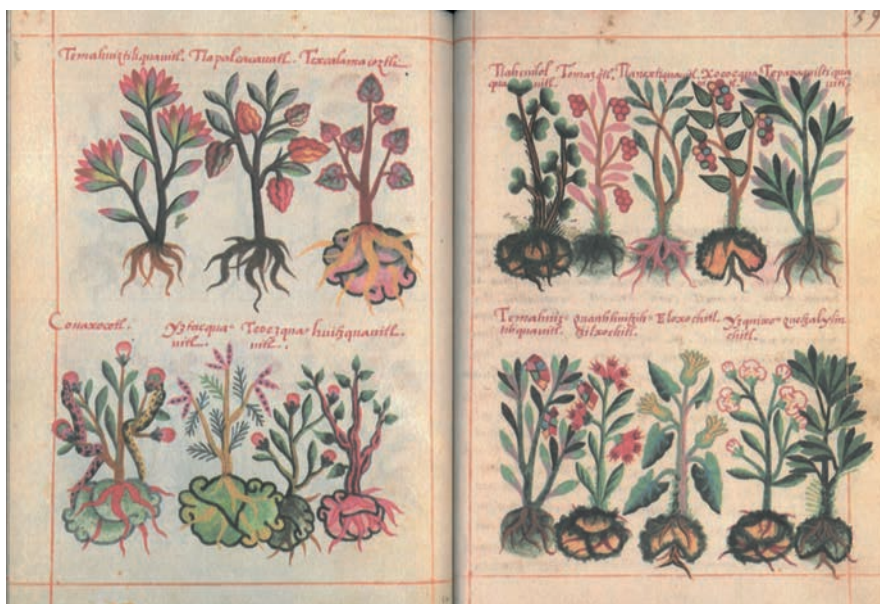 Temahuiztiliquauitl. Tlapalcacauatl. Texcalamacoztli
Couaxocotl.
Yztacqua-
uitl.
Teoezqua-
uitl.
huitzquauitl.
39
Tlahcuilol
quauitl.
Tomazotl.
Tlanextiquauitl.
Xococqua
Tepapaquiltiqua
uitl.
Temahuiz-
tiliquauitl.
quauhhuitzitzil-
xochitl.
Eloxochitl.
Yzquixo-
chitl.